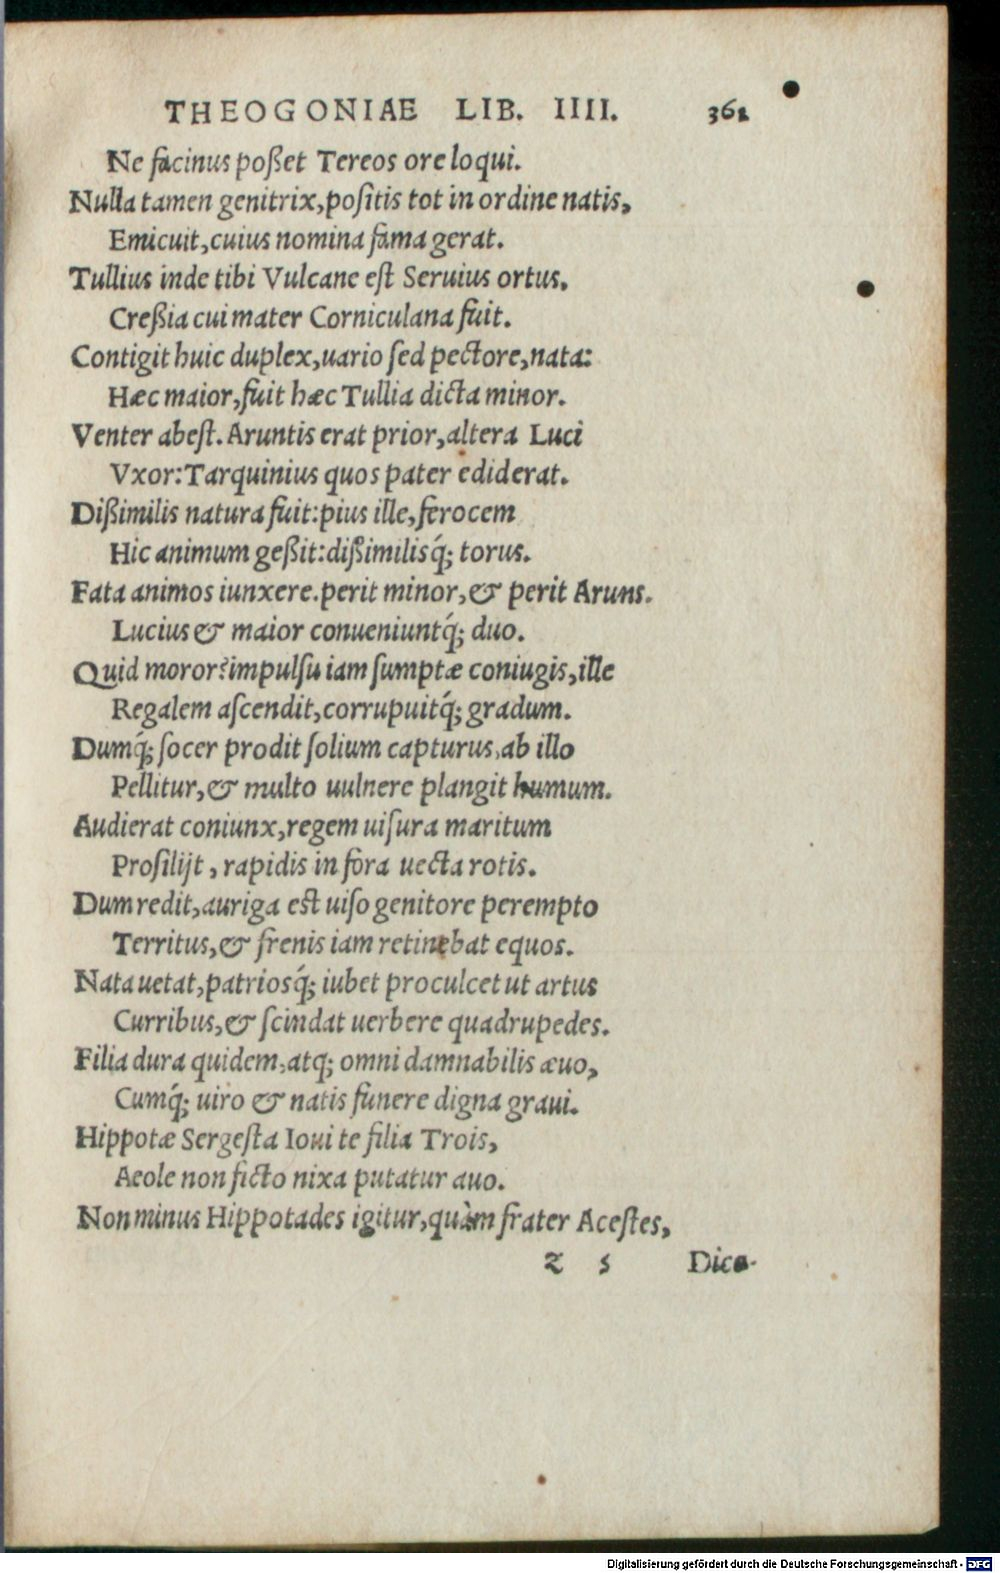 THEOGONIAE LIB. IIII. 361
Ne facinus poßet Tereos ore loqui.
Nulla tamen genitrix, positis tot in ordine natis,
Emicuit, cuius nomina fama gerat.
Tullius inde tibi Vulcane est Seruius ortus.
Creßia cui mater Corniculana fuit.
Contigit huic duplex, uario sed pectore, nata:
Hæc maior, fuit hæc Tullia dicta minor.
Venter abest. Aruntis erat prior, altera Luci
Vxor: Tarquinius quos pater ediderat.
Dißimilis natura fuit: pius ille, ferocem
Hic animum geßit: dißimilisq́; torus.
Fata animos iunxere. perit minor, & perit Aruns.
Lucius & maior conueniuntq́; duo.
Quid moror? impulsu iam sumptæ coniugis, ille
Regalem ascendit, corrupuitq́; gradum.
Dumq́; socer prodit solium capturus, ab illo
Pellitur, & multo uulnere plangit humum.
Audierat coniunx, regem uisura maritum
Prosilijt, rapidis in fora uecta rotis.
Dum redit, auriga est uiso genitore perempto
Territus, & frenis iam retinebat equos.
Nata uetat, patriosq́; iubet proculcet ut artus
Curribus, & scindat uerbere quadrupedes.
Filia dura quidem, atq; omni damnabilis æuo,
Cumq́; uiro & natis funere digna graui.
Hippotæ Sergesta Ioui te filia Trois,
Aeole non ficto nixa putatur auo.
Non minus Hippotades igitur, quàm frater Acestes,
z 5 Dica-
Digitalisierung gefördert durch die Deutsche Forschungsgemeinschaft - DFG